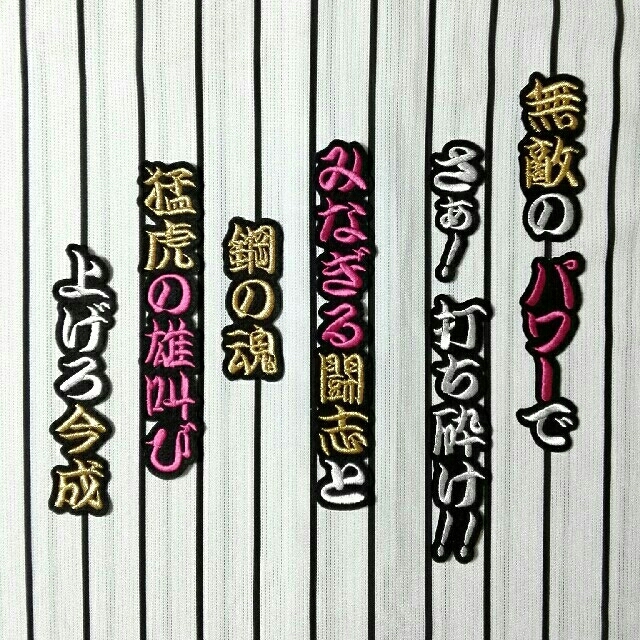 無敵のパワーで
さぁ! 打ち砕け!!
みなぎる闘志と
鋼の魂
猛虎の雄叫び
上げろ今成